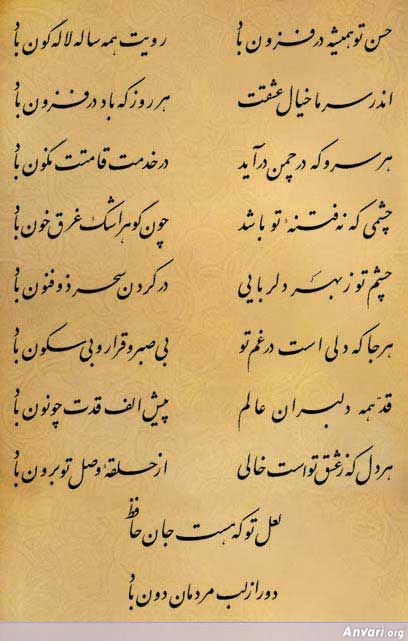 حسن تو همیشه در فزون باد رویت همه ساله لاله گون باد
اندر سر ما خیال عشقت هر روز که باد در فزون باد
هر سرو که در چمن درآید در خدمت قامتت نگون باد
چشمی که نه فتنهٔ تو باشد چون گوهر اشک غرق خون باد
چشم تو ز بهر دلربایی در کردن سحر ذوفنون باد
هر جا که دلی است در غم تو بی صبر و قرار و بی سکون باد
قد همه دلبران عالم پیش الف قدت چو نون باد
هر دل که ز عشق تو است خالی از حلقهٔ وصل تو برون باد
لعل تو که هست جان حافظ
دور از لب مردمان دون باد
Anvari.org